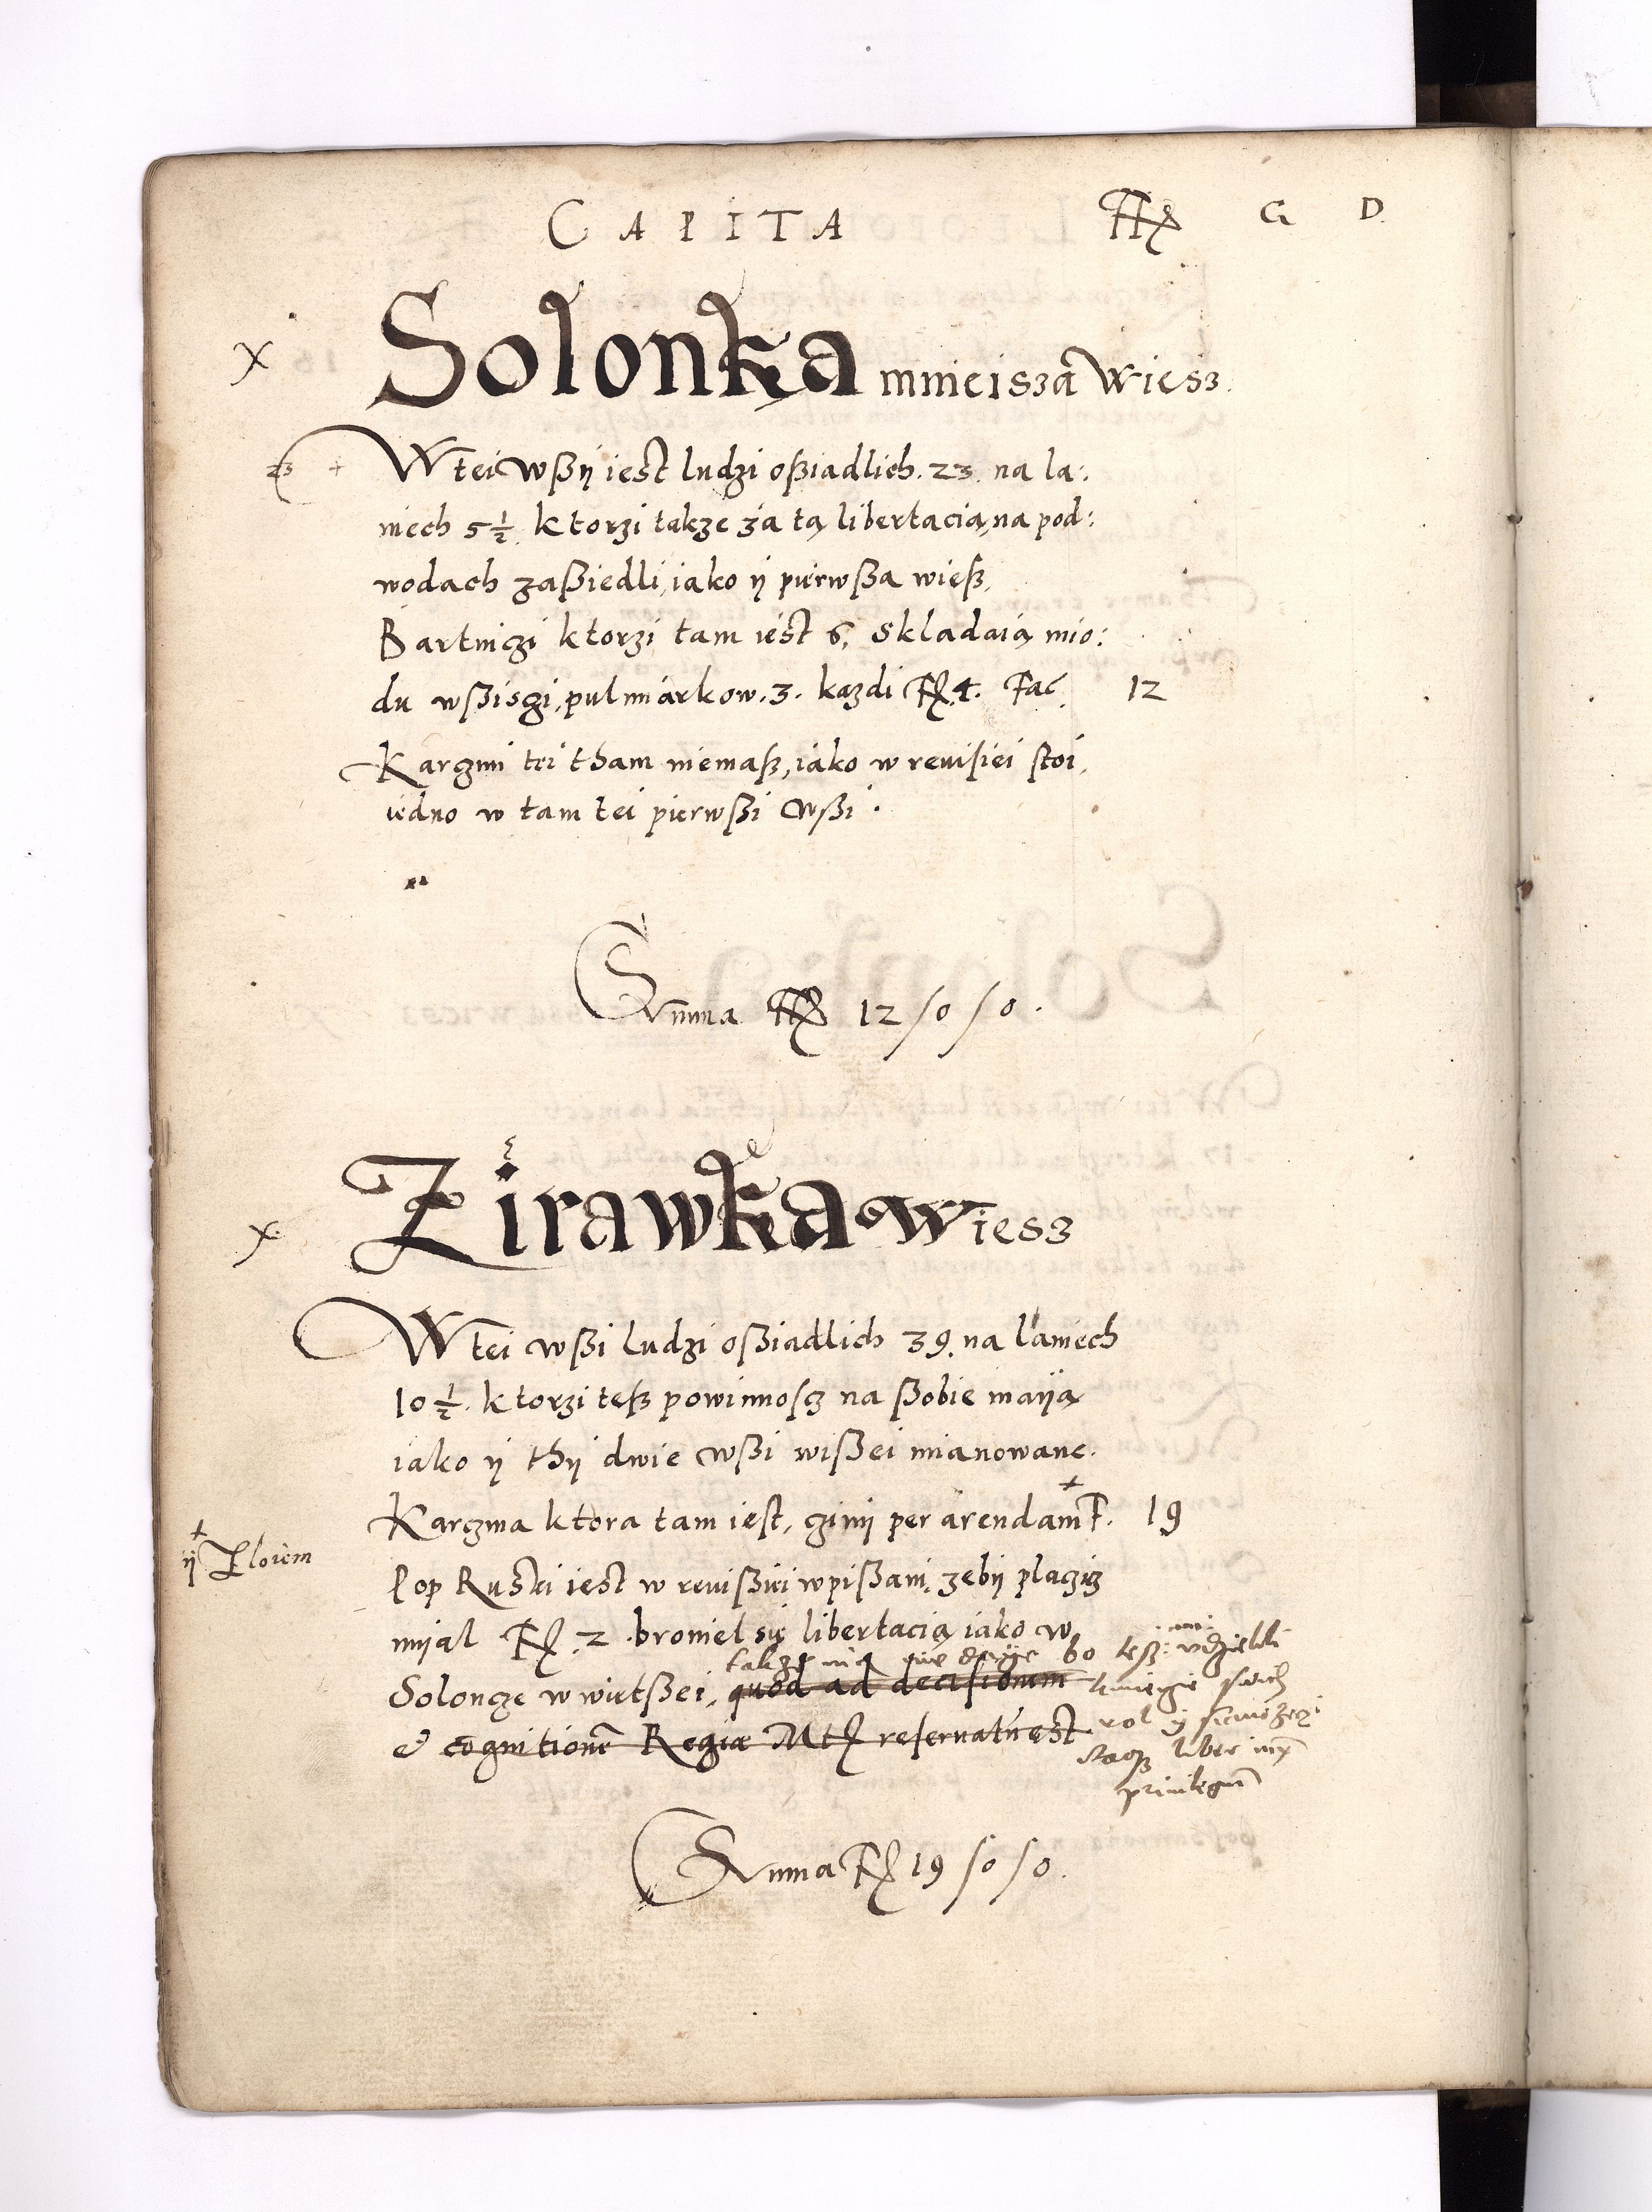 CAPITA Fl G D
x Solonka mnieisza Wiesz.
23 + W tei Wßÿ iest ludzi oßiadlich. 23. na la:
niech 5 1/2 ktorzi takze za tą libertacią, na pod:
wodach zaßiedli, iako ÿ pierwßa wieß,
Bartniczi ktorzi tam iest 6, skladaią mio:
du wßisgi, pulmiarkow. 3. kazdi Fl. 4. Fac. 12
Karczmi tei tham niemaß, iako w reuisiei stoi,
iedno w tam tei pierwßi wßi.
Summa Fl 12/0/0.
x Zirawka Wiesz
W tei wßi ludzi oßiadlich 39. na laniech
10 1/2. ktorzi teß powinnoscz na ßobie maiją
iako ÿ thÿ dwie wßi wißei mianowane.
Karczma ktora tam iest, czini per arendam F. 19
+ ÿ Łoiem
Pop Ruski iest w reuißiei wpißani, zebÿ placzicz
mijal Fl. 2. broniel się libertacią iako w
takze nie daÿe bo teß
Soloncze w wietßei, quod ad decisionem
swich
& cognitionē Regiæ Mtɫ reseruatū est
rol ÿ
privilegiū
Summa Fl 19/0/0.